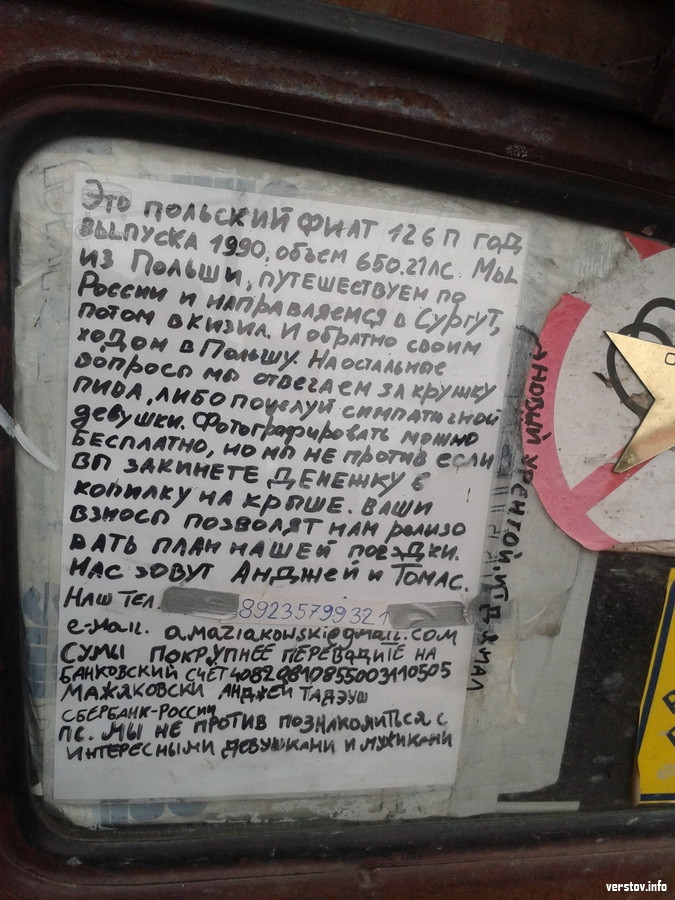 Это польский фиат 126п год
выпуска 1990, объем 650.21лс. Мы
из Польши, путешествуем по
России и направляемся в Сургут,
потом в Кизил. И обратно своим
ходом в Польшу. На остальные
вопросы мы отвечаем за кружку
пива, либо поцелуй симпатичной
девушки. Фотографировать можно
бесплатно, но мы не против если
вы закинете денежку в
копилку на крыше. Ваши
взносы позволят нам релизо
вать план нашей поездки.
Нас зовут Анджей и Томас.
Наш тел. 89235799321
e-mail. a.maziakowski@gmail.com
Сумы покрупнее переводите на
банковский счёт 40820810855003110505
Мажяковски Анджей Тадэуш
Сбербанк-России
пс. мы не против познакомиться с
интересными девушками и мужиками
Новый Уренгой
Ямал
verstov.info